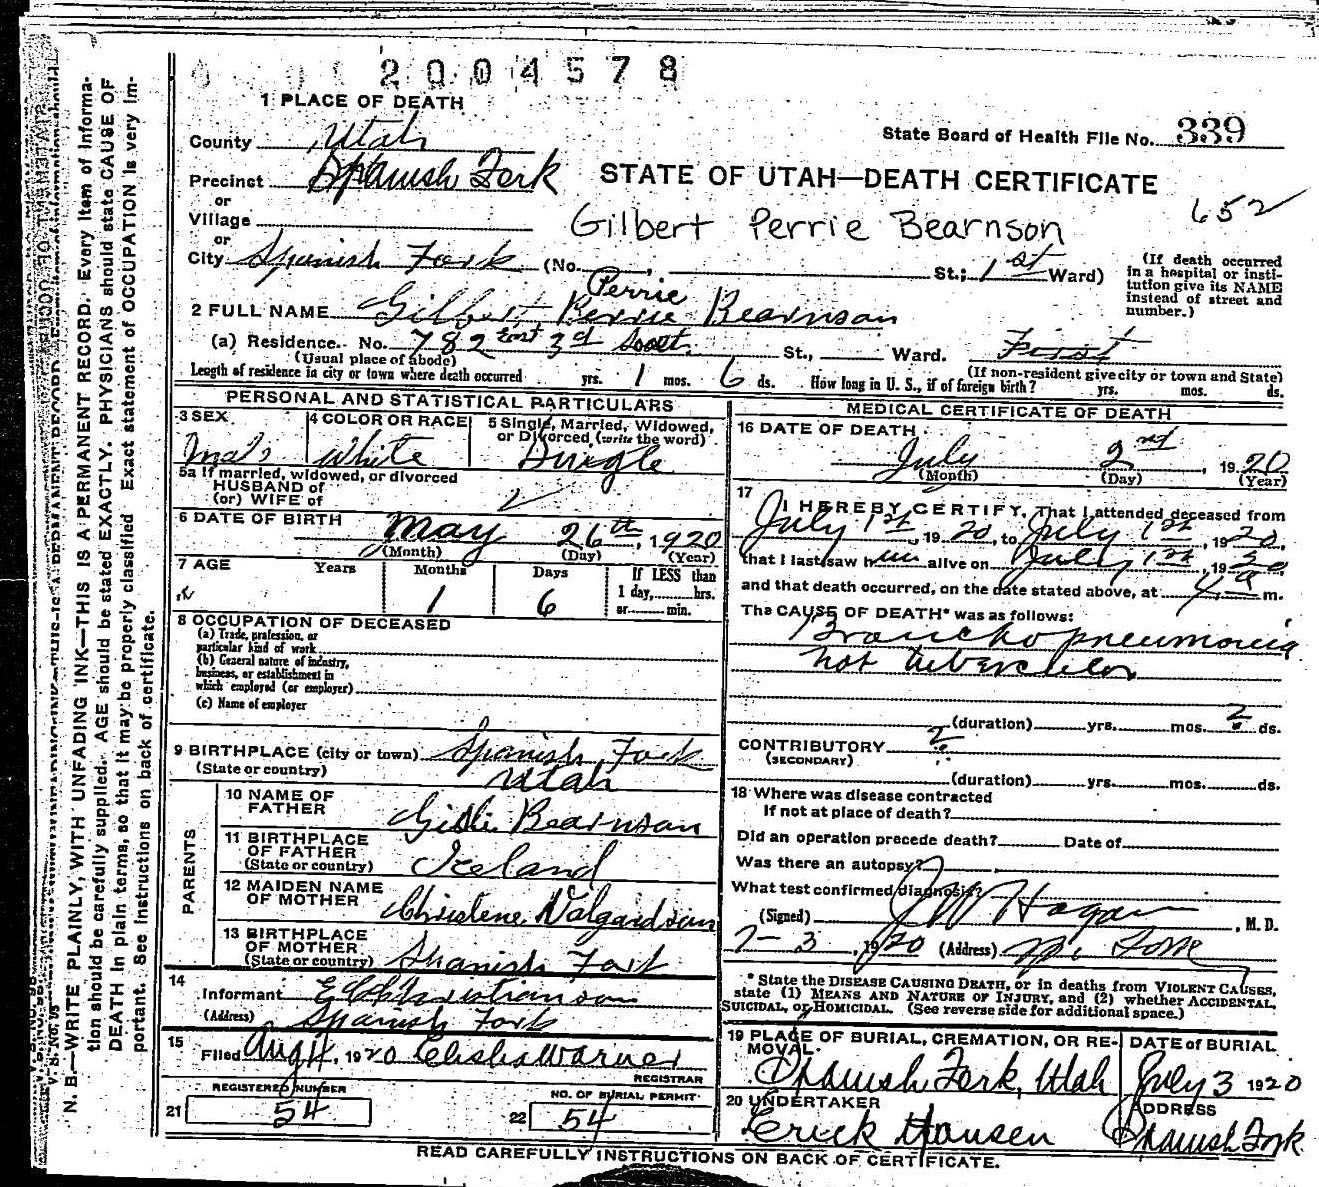 2004578
1 PLACE OF DEATH
State Board of Health File No. 339
County Utah
Precinct Spanish Fork
STATE OF UTAH—DEATH CERTIFICATE
652
or
Village
Gilbert Perrie Bearnson
or
City Spanish Fork (No. , St.; 1st Ward)
(If death occurred in a hospital or institution give its NAME instead of street and number.)
Perrie
2 FULL NAME Gilbert Perrie Bearnson
(a) Residence. No. 782 East 3d South St., Ward. First
(Usual place of abode) (If non-resident give city or town and State)
Length of residence in city or town where death occurred yrs. 1 mos. 6 ds. How long in U. S., if of foreign birth? yrs. mos. ds.
PERSONAL AND STATISTICAL PARTICULARS
3 SEX Male
4 COLOR OR RACE White
5 Single, Married, Widowed, or Divorced (write the word) Single
5a If married, widowed, or divorced
HUSBAND of
(or) WIFE of
6 DATE OF BIRTH May 26th, 1920
(Month) (Day) (Year)
7 AGE Years Months Days If LESS than
1 6 1 day, hrs.
or min.
8 OCCUPATION OF DECEASED
(a) Trade, profession, or
particular kind of work
(b) General nature of industry,
business, or establishment in
which employed (or employer)
(c) Name of employer
9 BIRTHPLACE (city or town) Spanish Fork
(State or country) Utah
PARENTS
10 NAME OF FATHER Gisli Bearnson
11 BIRTHPLACE OF FATHER (State or country) Iceland
12 MAIDEN NAME OF MOTHER Christene Valgardson
13 BIRTHPLACE OF MOTHER (State or country) Spanish Fork
14
Informant E C Christianson
(Address) Spanish Fork
15 Filed Aug 4, 1920 Elisha Warner
REGISTRAR
REGISTERED NUMBER
21 54
NO. OF BURIAL PERMIT
22 54
MEDICAL CERTIFICATE OF DEATH
16 DATE OF DEATH
July 2nd, 1920
(Month) (Day) (Year)
17
I HEREBY CERTIFY, That I attended deceased from
July 1st, 1920, to July 1st, 1920,
that I last saw him alive on July 1st, 1920
and that death occurred, on the date stated above, at 4 a m.
The CAUSE OF DEATH* was as follows:
Broncho pneumonia
not tubercular
(duration) yrs. mos. 2 ds.
CONTRIBUTORY
(SECONDARY)
(duration) yrs. mos. ds.
18 Where was disease contracted
If not at place of death?
Did an operation precede death? Date of
Was there an autopsy?
What test confirmed diagnosis?
(Signed) J W Hagan, M. D.
7-3, 1920 (Address) Sp. Fork
* State the DISEASE CAUSING DEATH, or in deaths from VIOLENT CAUSES,
state (1) MEANS AND NATURE OF INJURY, and (2) whether ACCIDENTAL,
SUICIDAL, or HOMICIDAL. (See reverse side for additional space.)
19 PLACE OF BURIAL, CREMATION, OR REMOVAL
Spanish Fork, Utah
DATE of BURIAL
July 3 1920
20 UNDERTAKER
Erick Hansen
ADDRESS
Spanish Fork
READ CAREFULLY INSTRUCTIONS ON BACK OF CERTIFICATE.
N. B.—WRITE PLAINLY, WITH UNFADING INK—THIS IS A PERMANENT RECORD. Every item of informa-
tion should be carefully supplied. AGE should be stated EXACTLY. PHYSICIANS should state CAUSE OF
DEATH in plain terms, so that it may be properly classified. Exact statement of OCCUPATION is very im-
portant. See instructions on back of certificate.